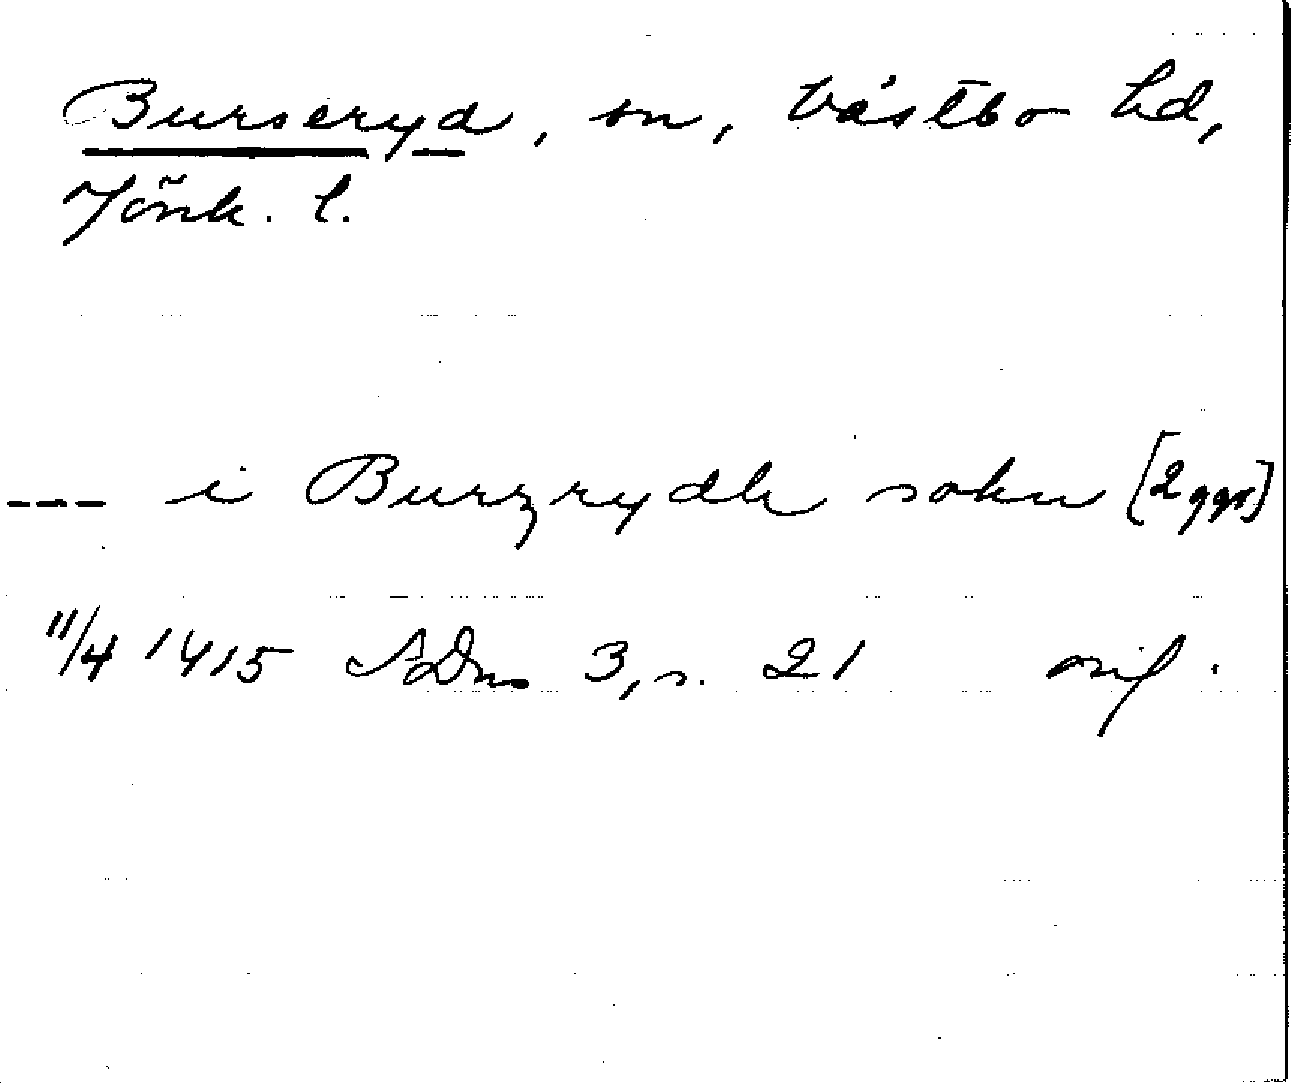 Burseryd, sn, Västbo hd,
Jönk. l.
--- i Burzrydh sokn [2 ggr]
11/4 1415 SDns 3, s. 21 orig.